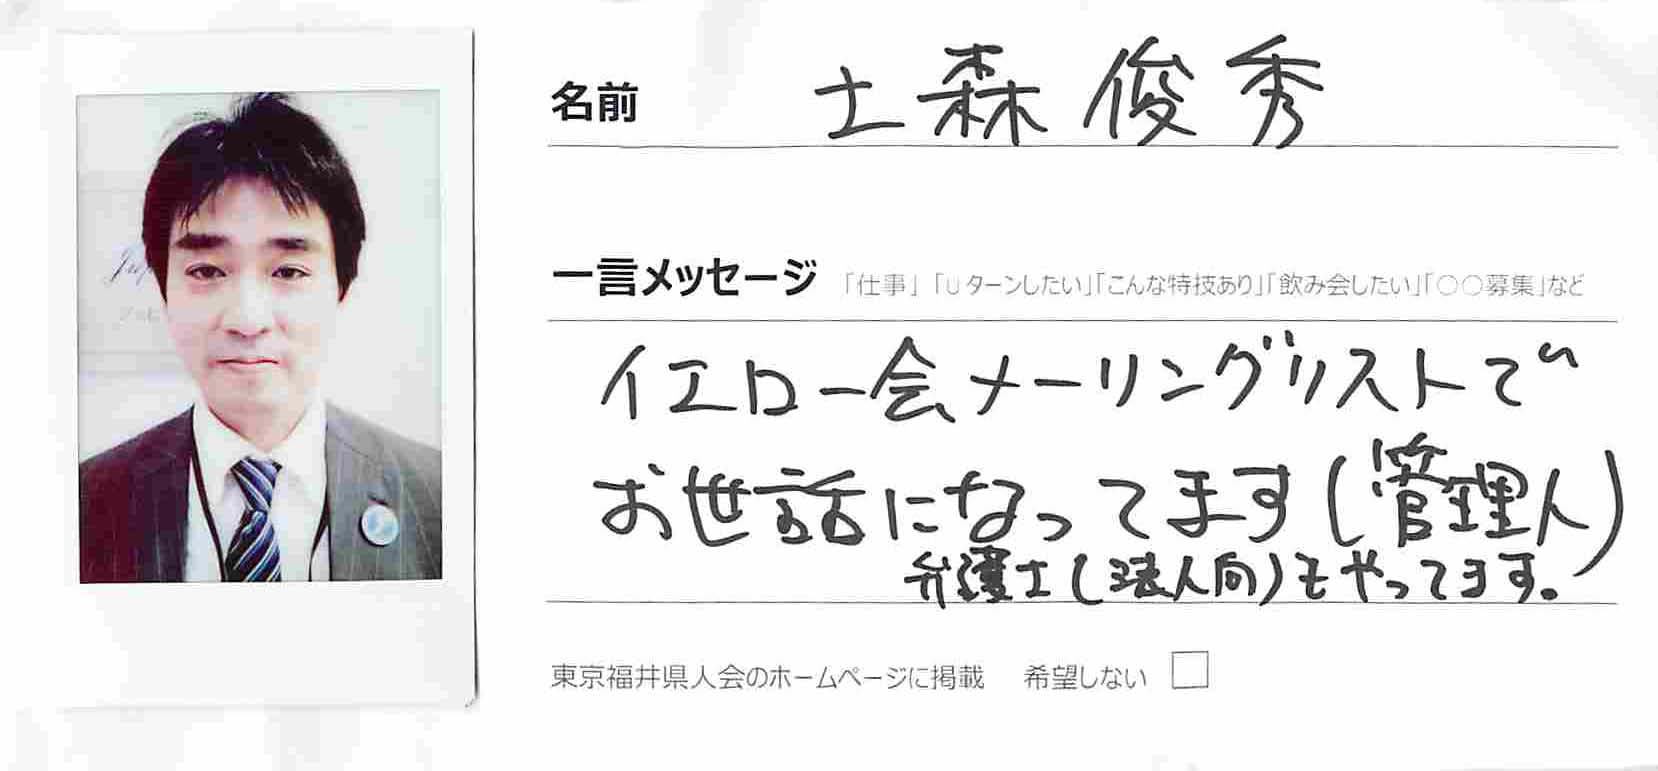 名前 土森俊秀
一言メッセージ 「仕事」「Uターンしたい」「こんな特技あり」「飲み会したい」「○○募集」など
イエロー会メーリングリストで
お世話になってます(管理人)
弁護士(法人向)もやってます。
東京福井県人会のホームページに掲載 希望しない □